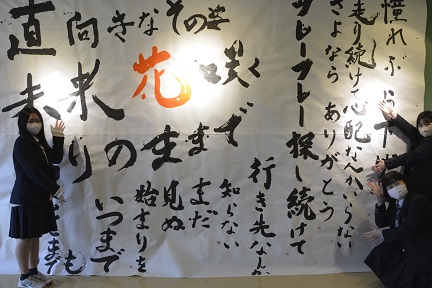 憧れぶら下げ
走り続けて心配なんかいらない
さよなら ありがとう
フレーフレー探し続けて
行き先なんか
知らない
まだ
見ぬ
始まりを
いつまで
も
直向きなその
未来
花咲く
りの生まで